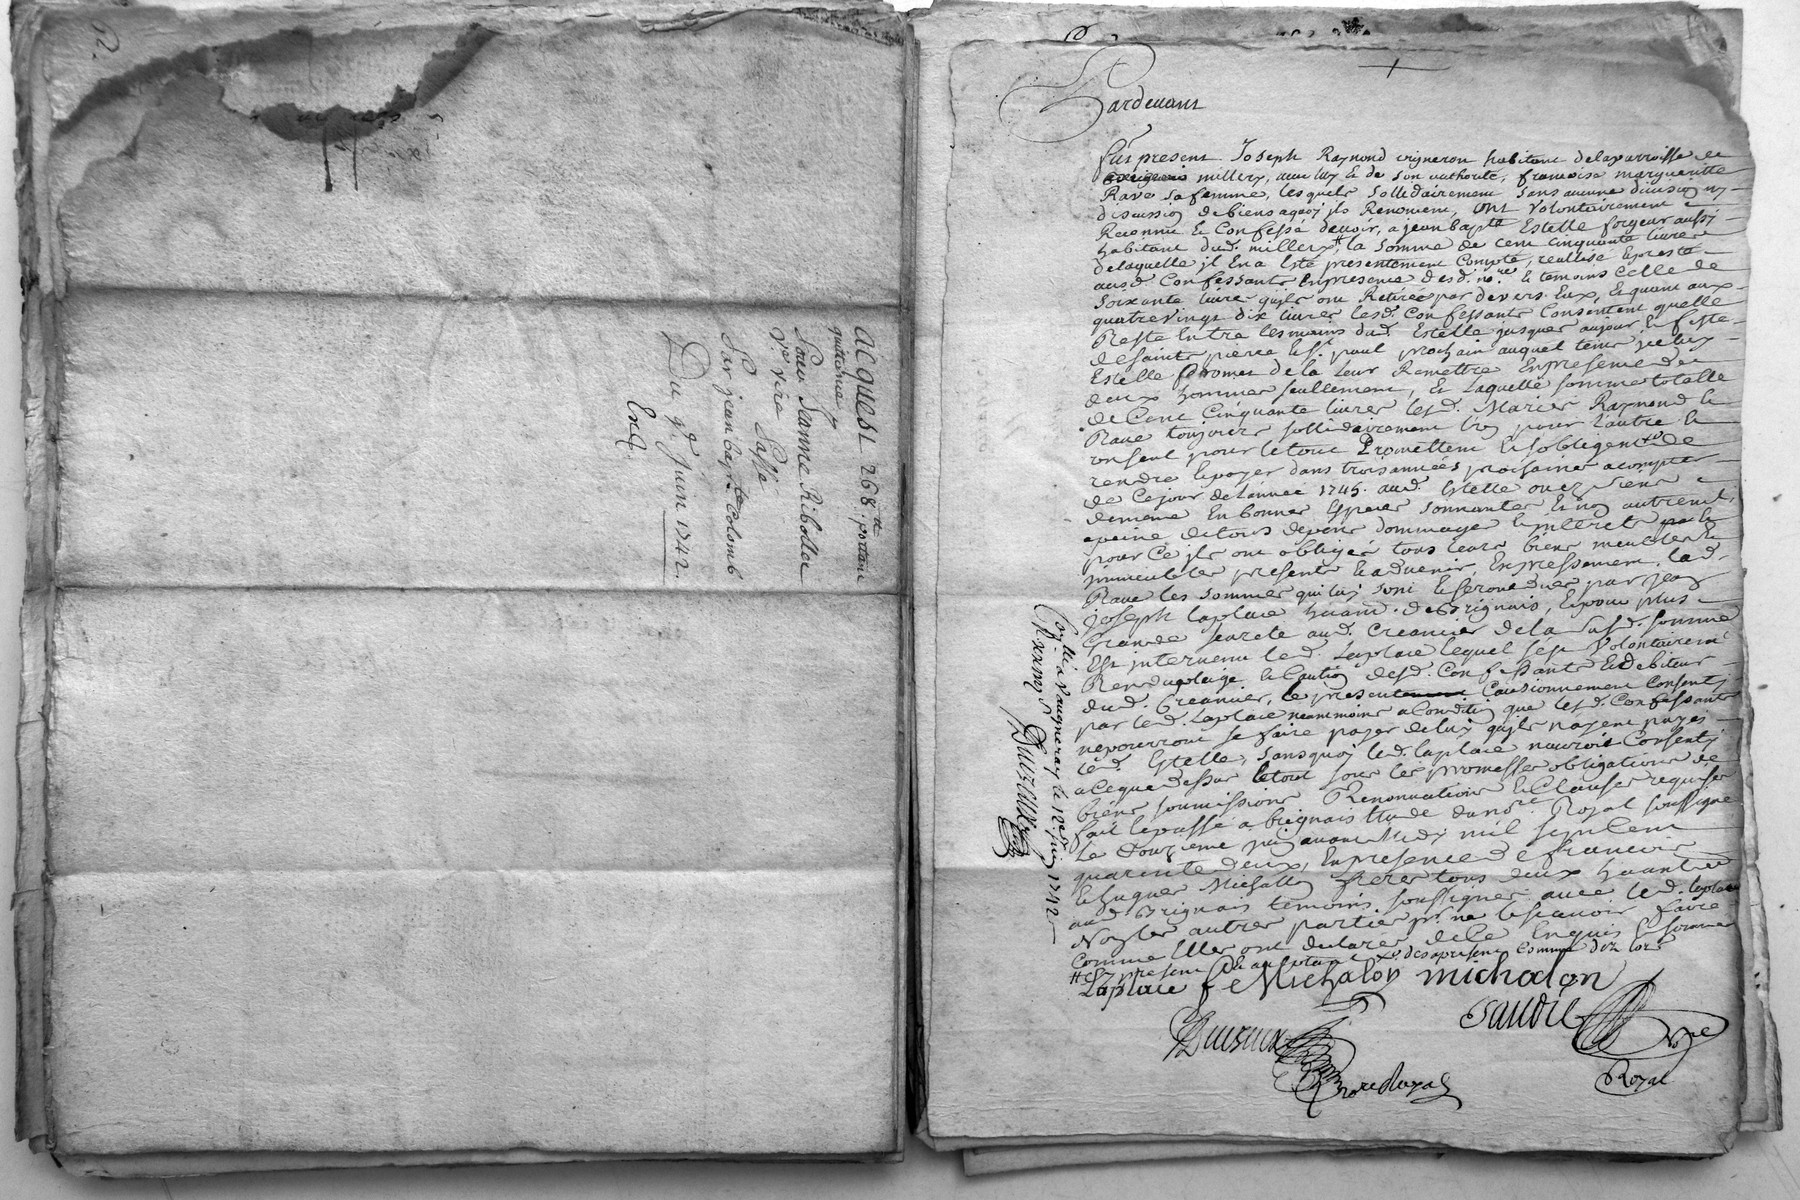 Acquest 268.tt portant
quitance
Pour Jeanne Ribollee
Ve. Vire
Sur jean bapte Colomb
Du 9e Juin 1742.
Enq.
Pardevant
fut present Joseph Raymond vigneron habitant delaparroisse de
millery, avec luy et de son authorité, francoise margueritte
Rave sa femme, lesquels sollidairement sans aucune division ny
discussion de biens aquoy ils Renoncent, ont volontairement
Reconnu et Confessé devoir, a jean bapte Estelle forgeur aussy
habitant dud. millery tt la somme de cent cinquante livres
delaquelle il En a Esté presentement Compté, reallisé Epresté
ausd. Confessants Enpresence desd. nores. E temoins celle de
soixante livres quils ont Retirée par devers Eux, Et quant aux
quatrevingt dix livres lesd. Confessants Consentent quelle
Reste Entre les mains dud. Estelle jusques aujour Et feste
de saints pierre Et st. paul prochain auquel tems
Estelle promet de la Leur Remettre Enpresence de
deux hommes seullement, Et Laquelle somme totalle
de Cent Cinquante livres lesd. Mariés Raymond Et
Rave toujours sollidairement l'un pour l'autre Et
un seul pour le tout Promettent Et sobligent de
rendre Epayer dans trois années prochaines acompter
de Cejour delannée 1745. aud. Estelle ou
Enbonnes Especes sonnantes Et non autrement,
apeine detous depens dommages Einterets
pour Ce ils ont obligés tous leurs biens meubles Et
immeubles presents Eadvenir, Expressement, lad.
Rave les sommes qui luy sont Et seront dues par jean
joseph Laplace habitt. de Brignais, Epour plus
Grande sureté aud. Creancier dela susd. somme
Est intervenu led. Laplace lequel sest volontairemt
Rendu pleige Et Caution desd. Confessants Et debiteurs
dud. Creancier, le present Cautionnement Consenty
par led. Laplace neantmoins aCondition que lesd. Confessants
nepourront se faire payer deluy quils nayent payés
led. Estelle, sansquoy led. laplace nauroit Consenty
aceque dessus letout sous les promesses obligations de
biens soumissions Renonciations Et Clauses requises
fait Epassé a brignais Etude dunore Royal soussigné
Le Douzieme juin avant Midy mil sept cent
quarente deux, Enpresence de francois
Et hugues Michallon freres tous deux habitants
aud. Brignais temoins soussignés avec led. laplace
Non les autres parties pr. ne le scavoir faire
Comme Elles ont declarés dece Enquis Et sommées
tt Cy present Et acceptant
Laplace f Michalon michalon
Gaudet
Nore
Royal
nore Royal
Conllé a Vaugneray le 12e juin 1742